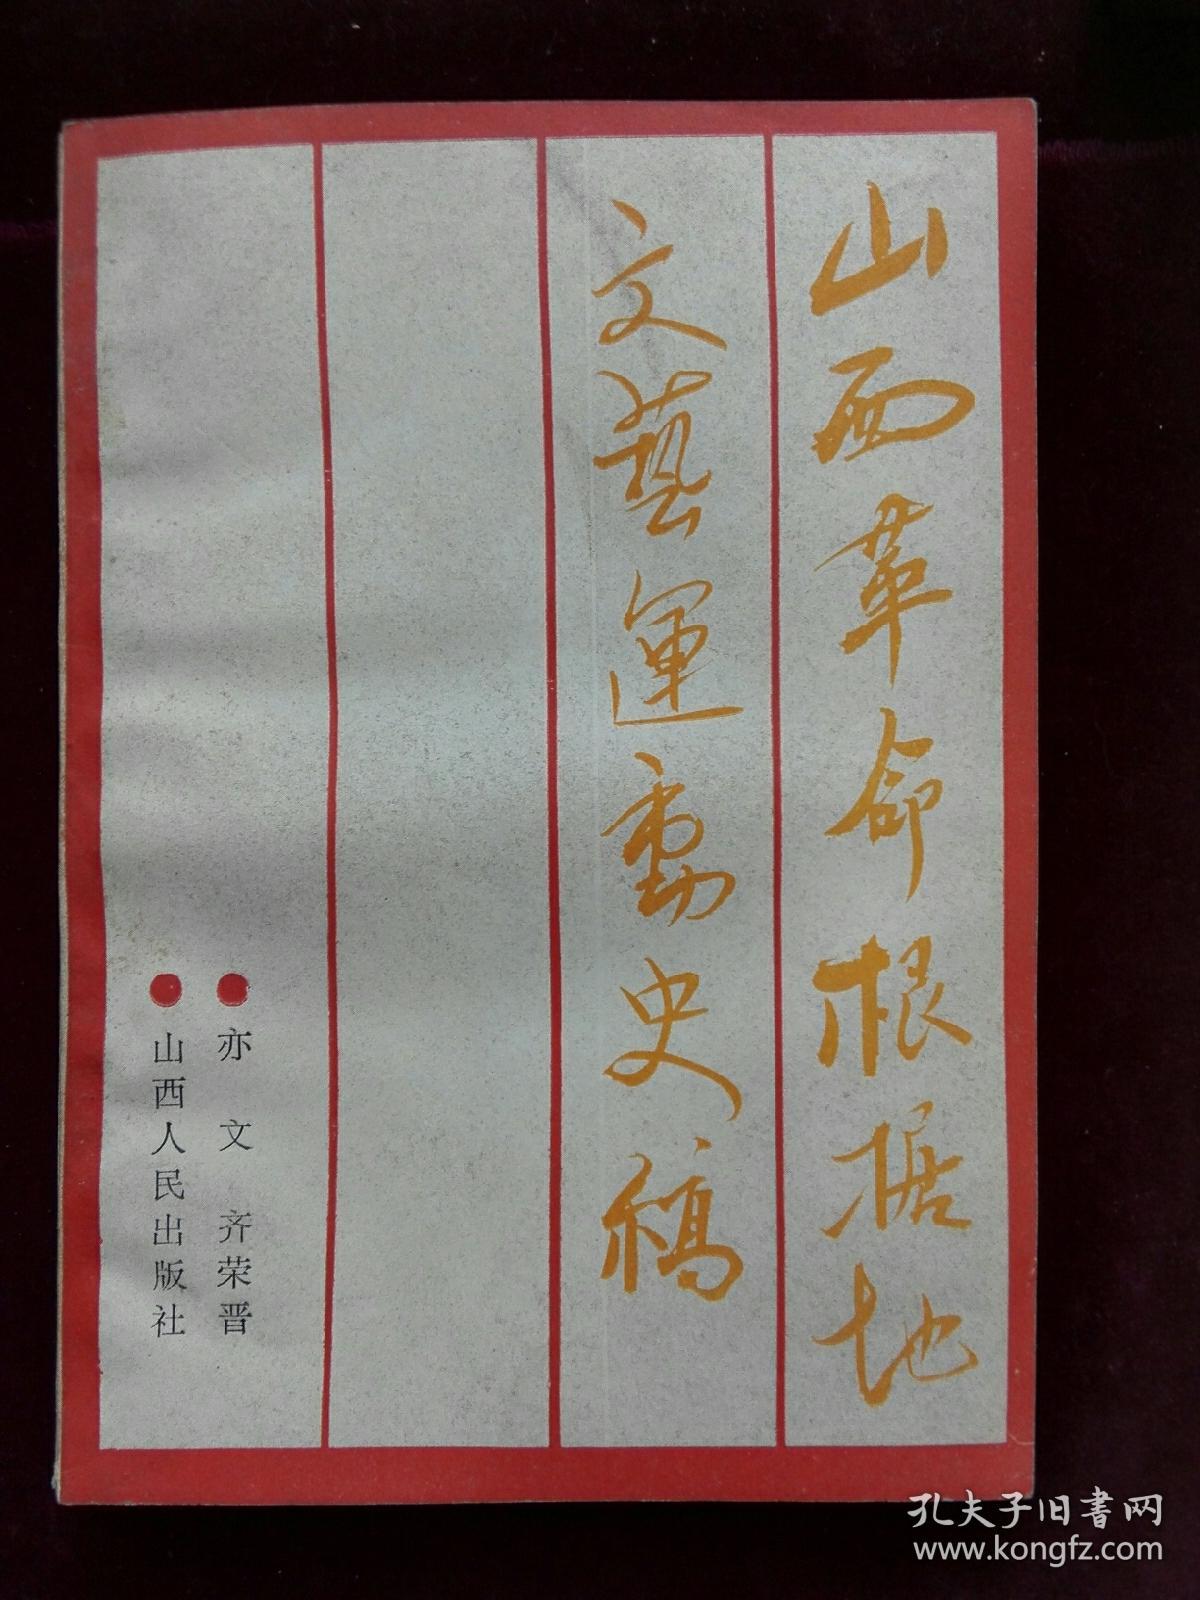 山西革命根据地
文藝運動史稿
亦文 齐荣晋
山西人民出版社
孔夫子旧书网
www.kongfz.com